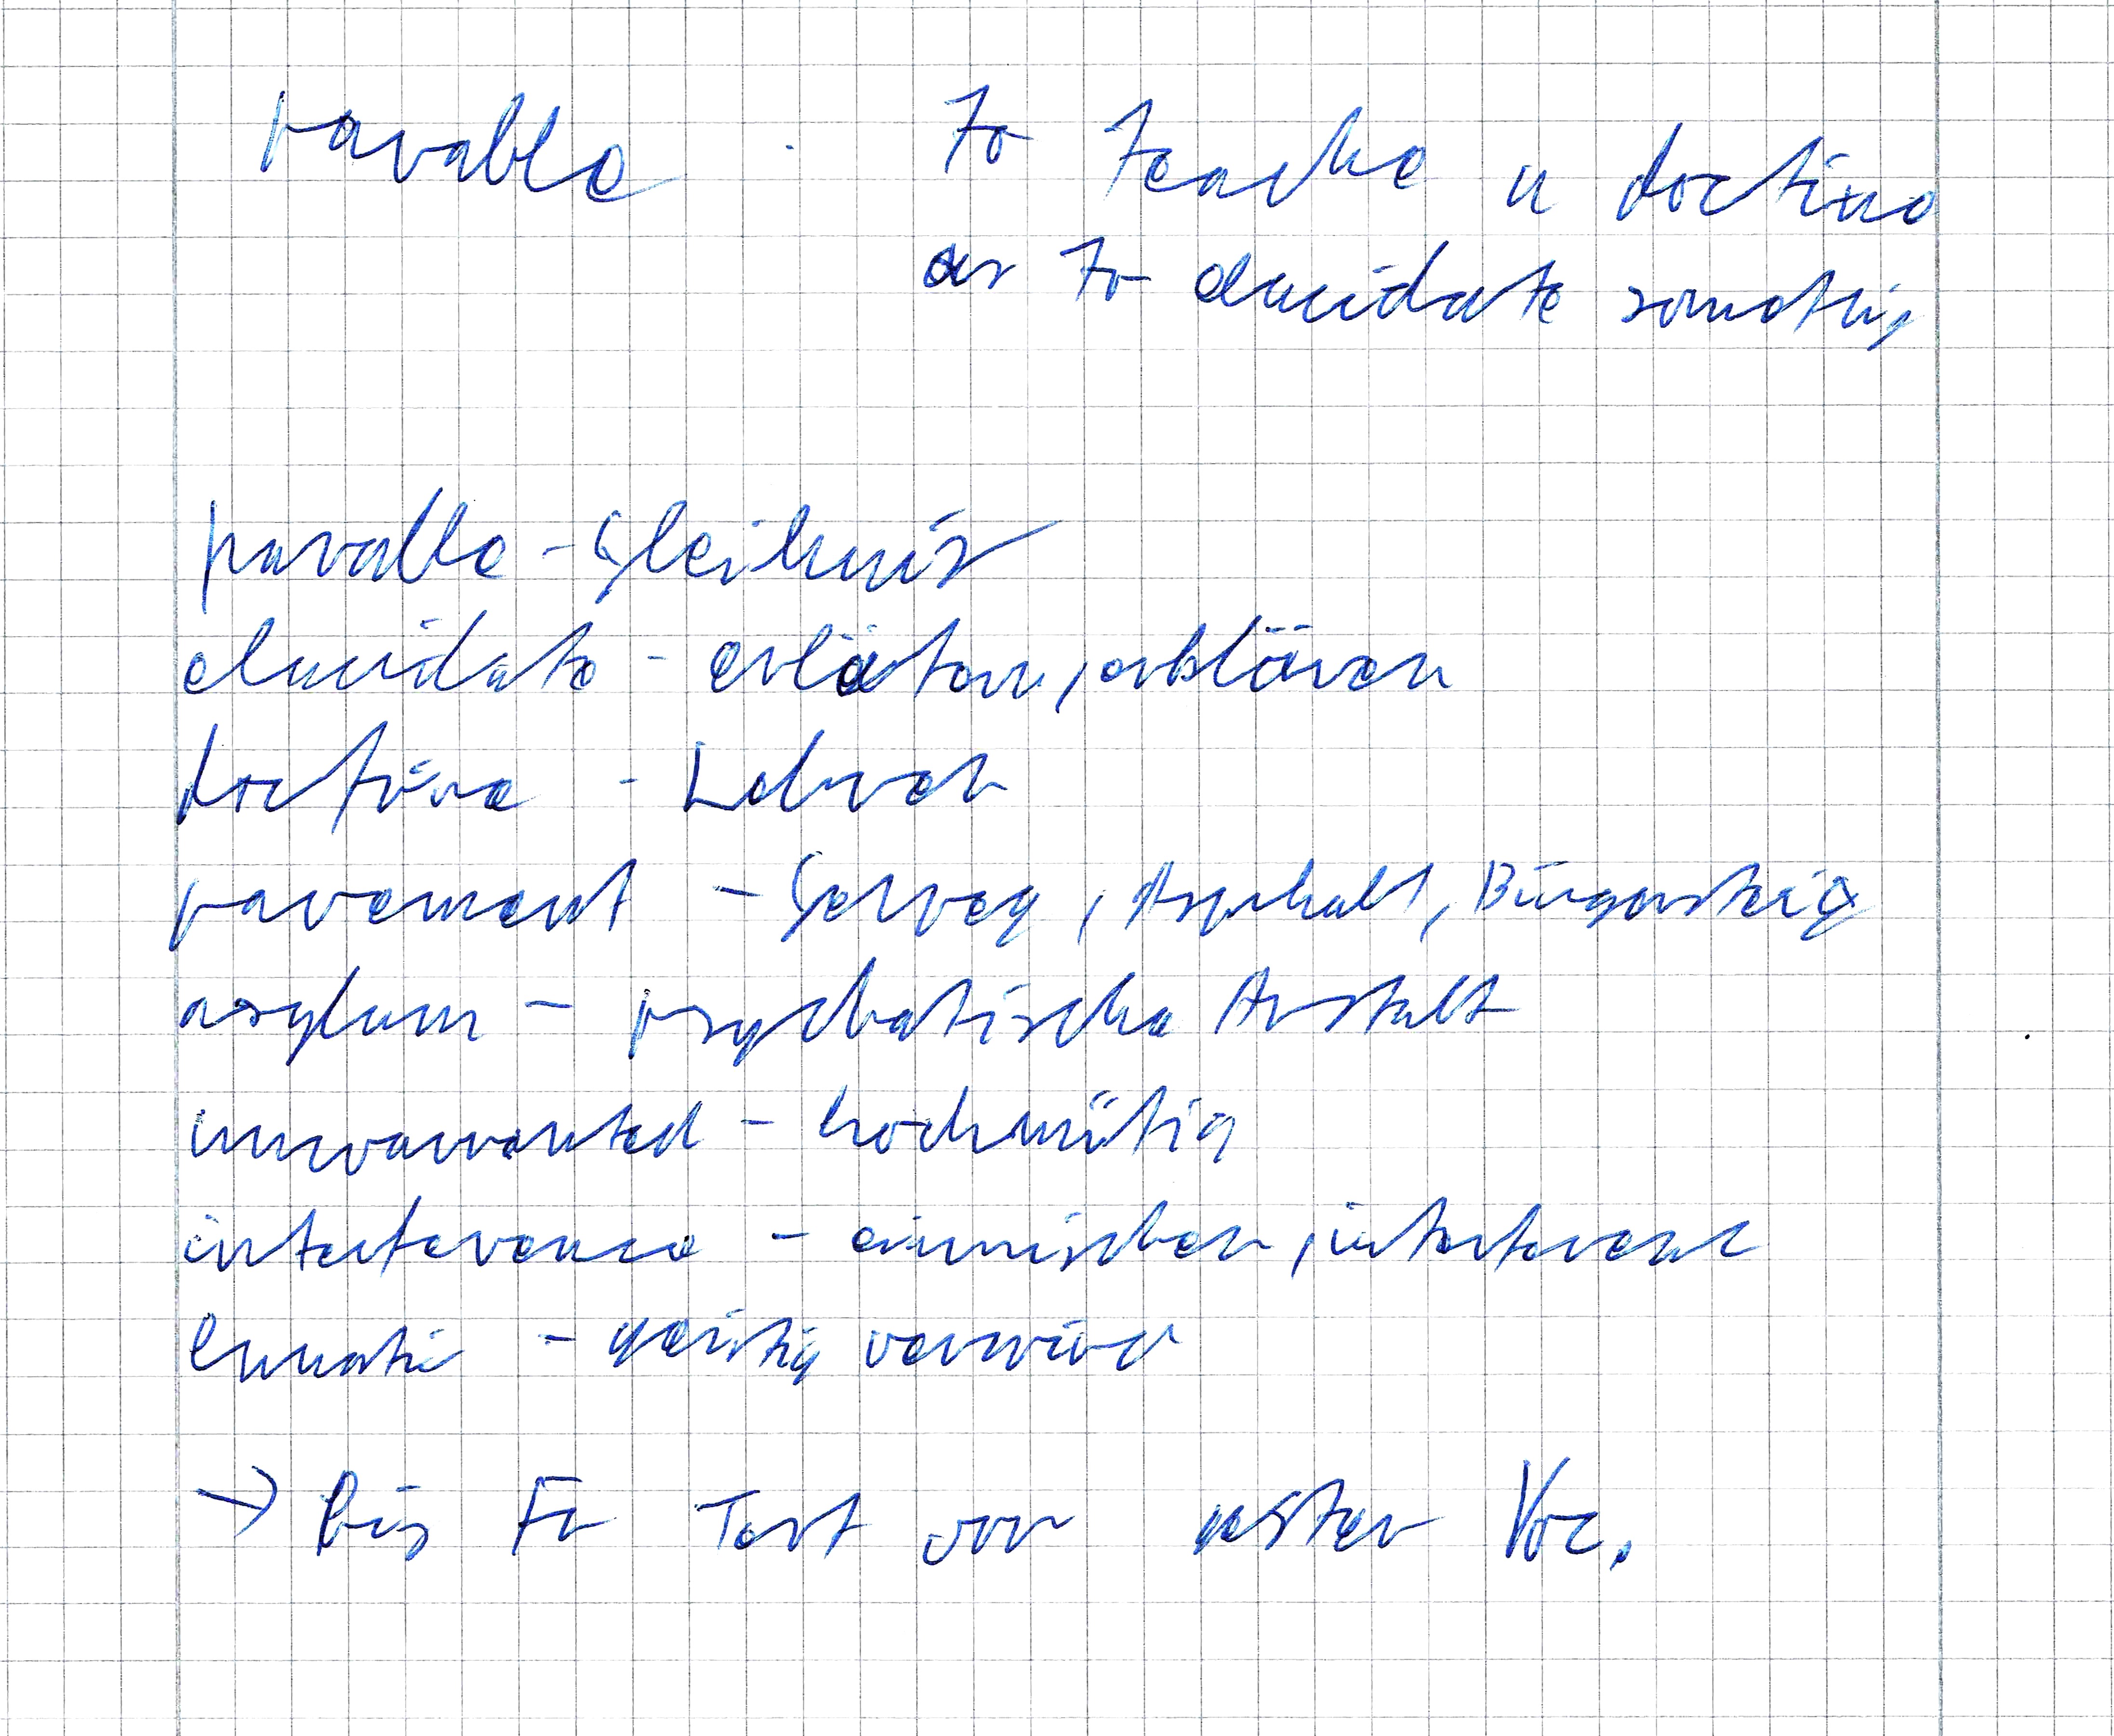 parable : To teache a doctrine
or to elucidate somethig
parable - Gleichnis
elucidate - erläutern, erklären
doctrine - Lehren
pavement - Gehweg, Asphalt, Bürgersteig
asylum - psychatische Anstalt
unwarranted - hochmütig
interference - einmischen,
lunatic - geistig verwirrt
→ Bis Fr Test von Voc.